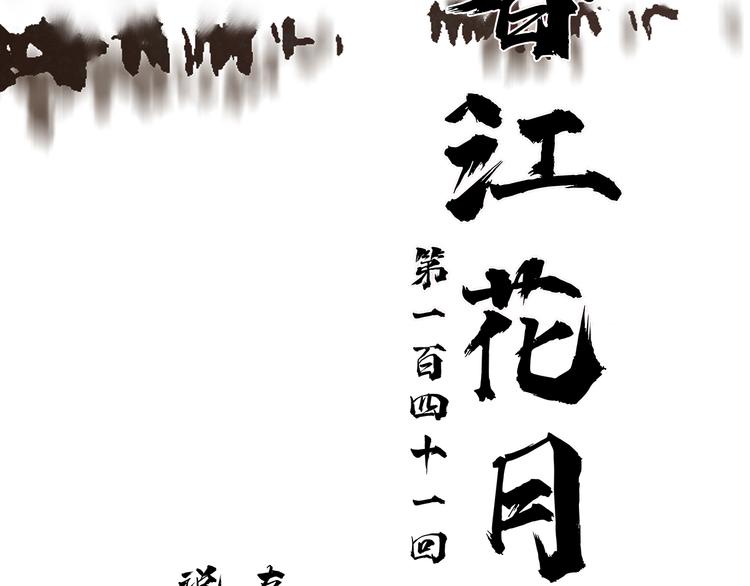 江花月
第一百四十一回